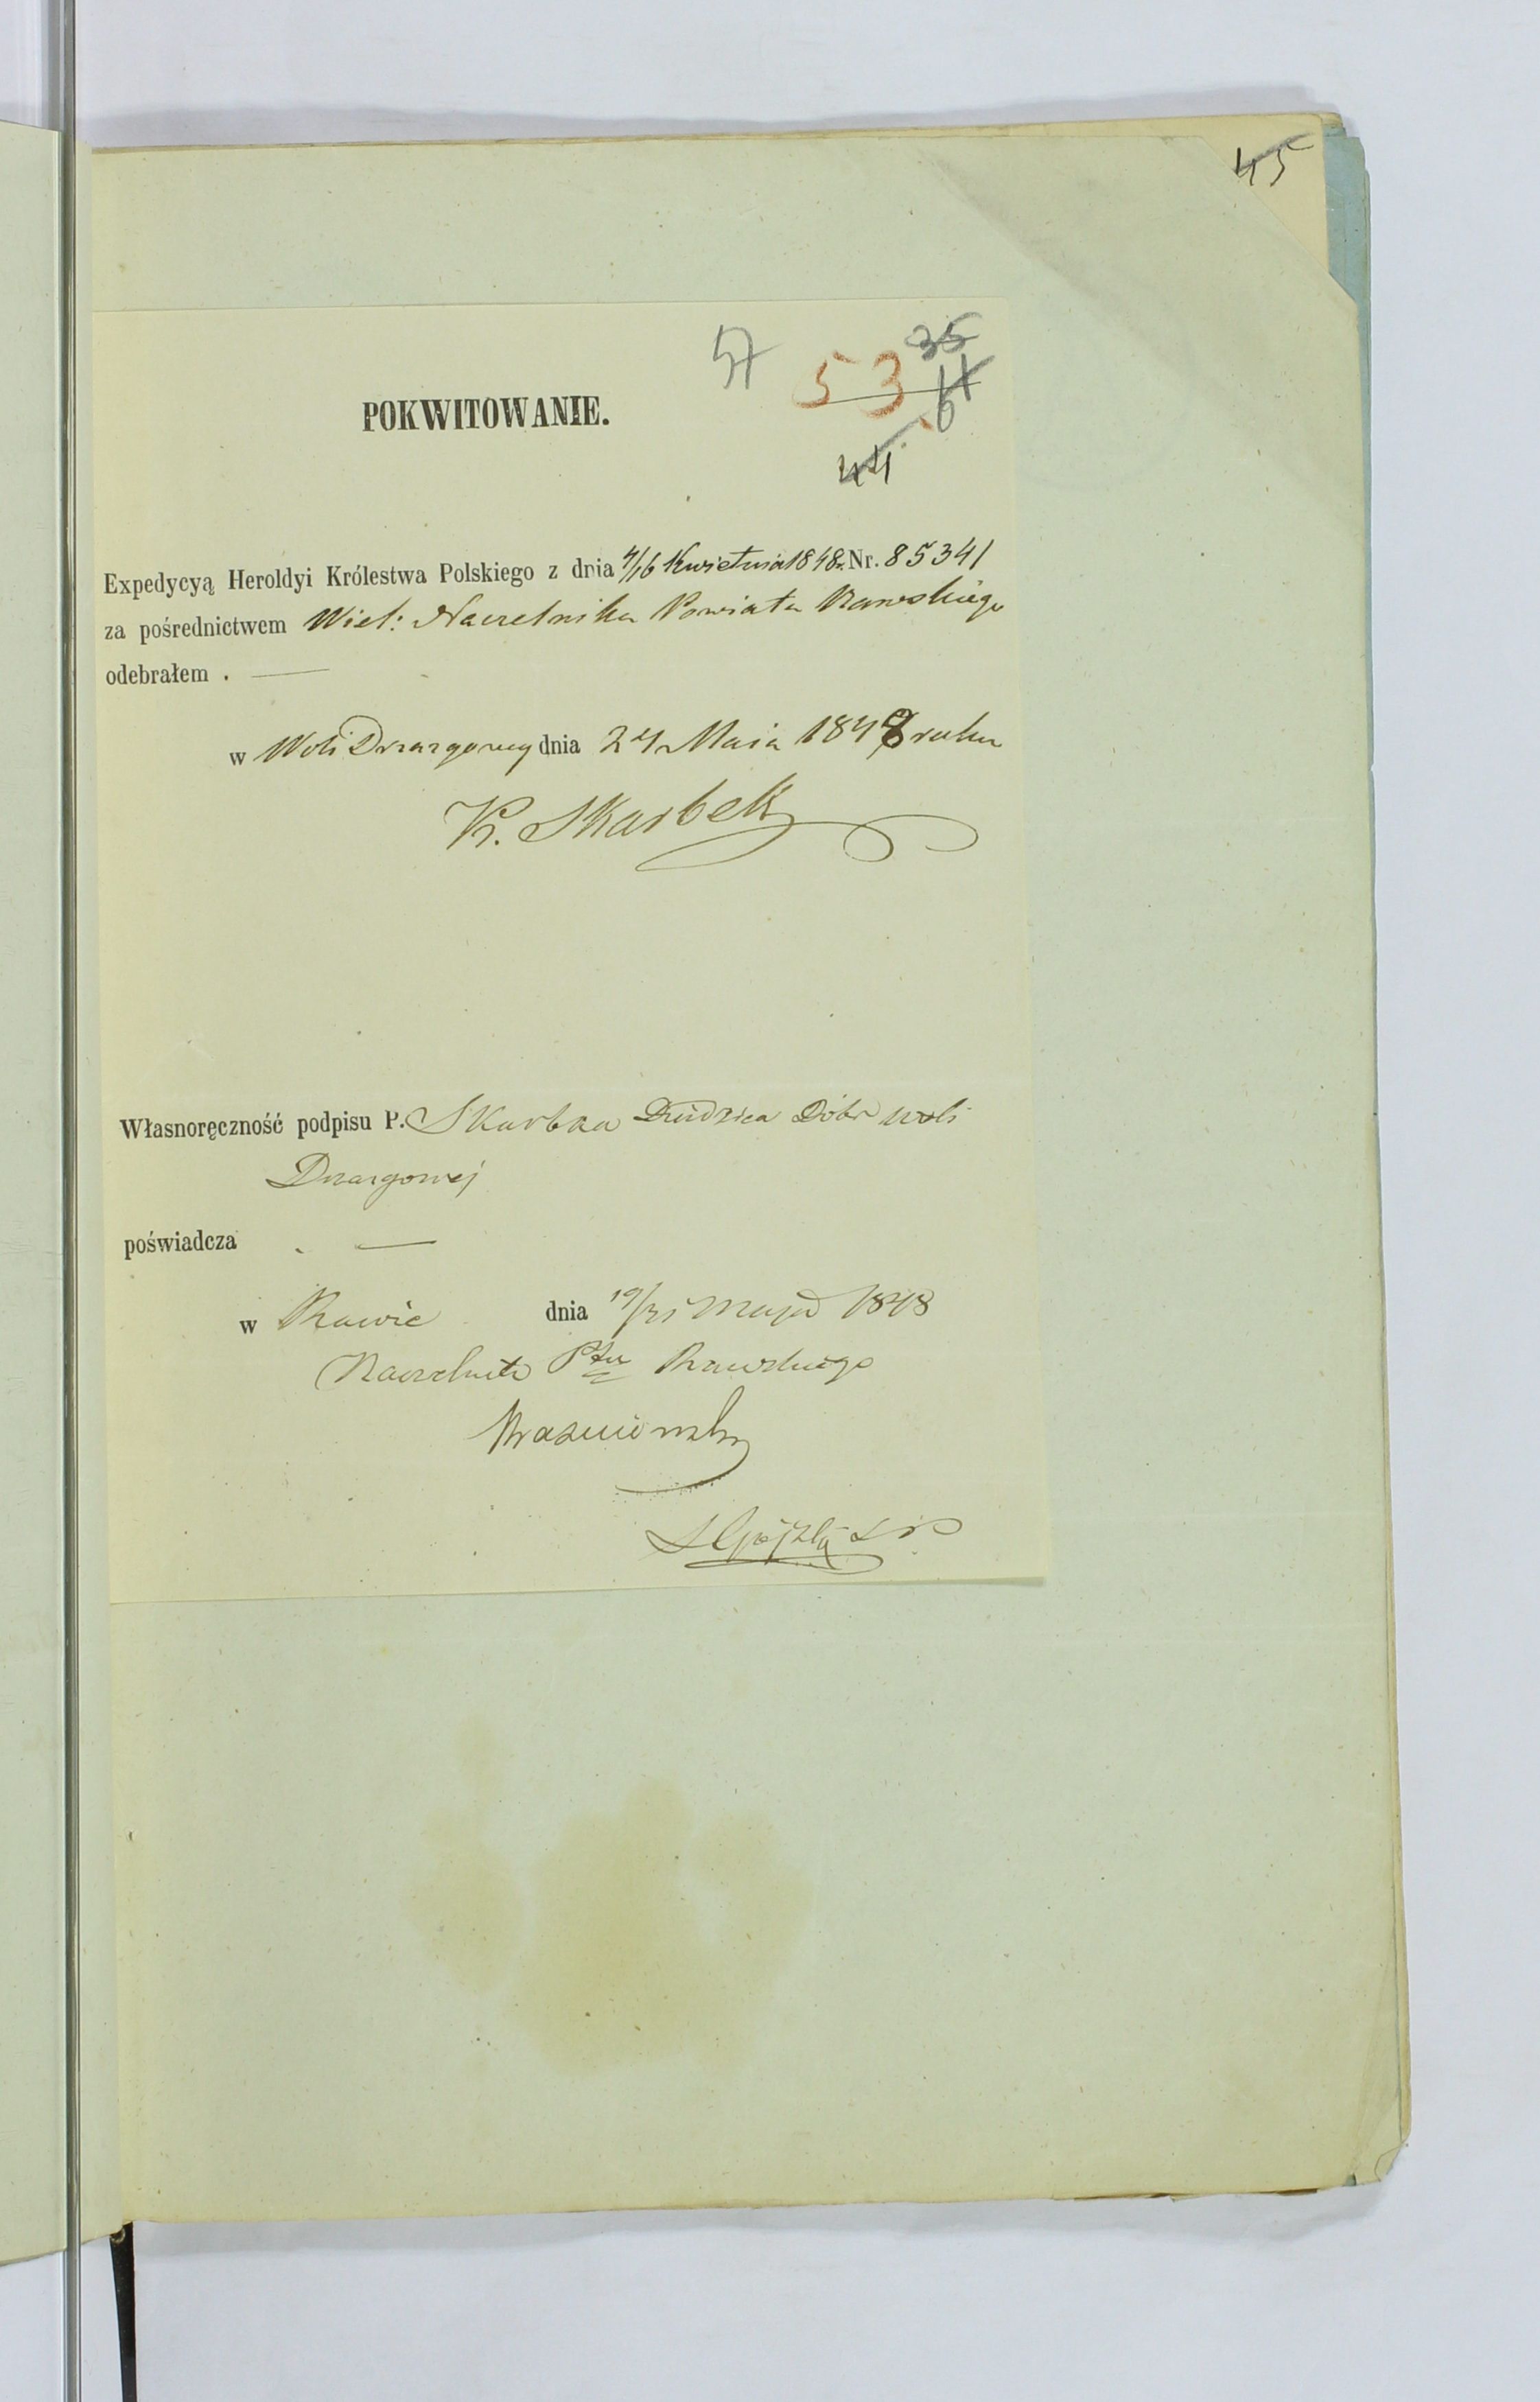 45
57 53 35
61
44
POKWITOWANIE.
Expedycyą Heroldyi Królestwa Polskiego z dnia 4/16 Kwietnia 1848r. Nr. 85341
za pośrednictwem Wiel: Naczelnika Powiatu Rawskiego
odebrałem . —
w Woli Drzazgowy dnia 24 Maia 1848 roku
K. Skarbek
Własnoręczność podpisu P. Skarbka Dziedzica Dóbr woli
Drzazgowej
poświadcza . —
w Rawie dnia 19/31 Maja 1848
Naczelnik Ptu Rawskiego